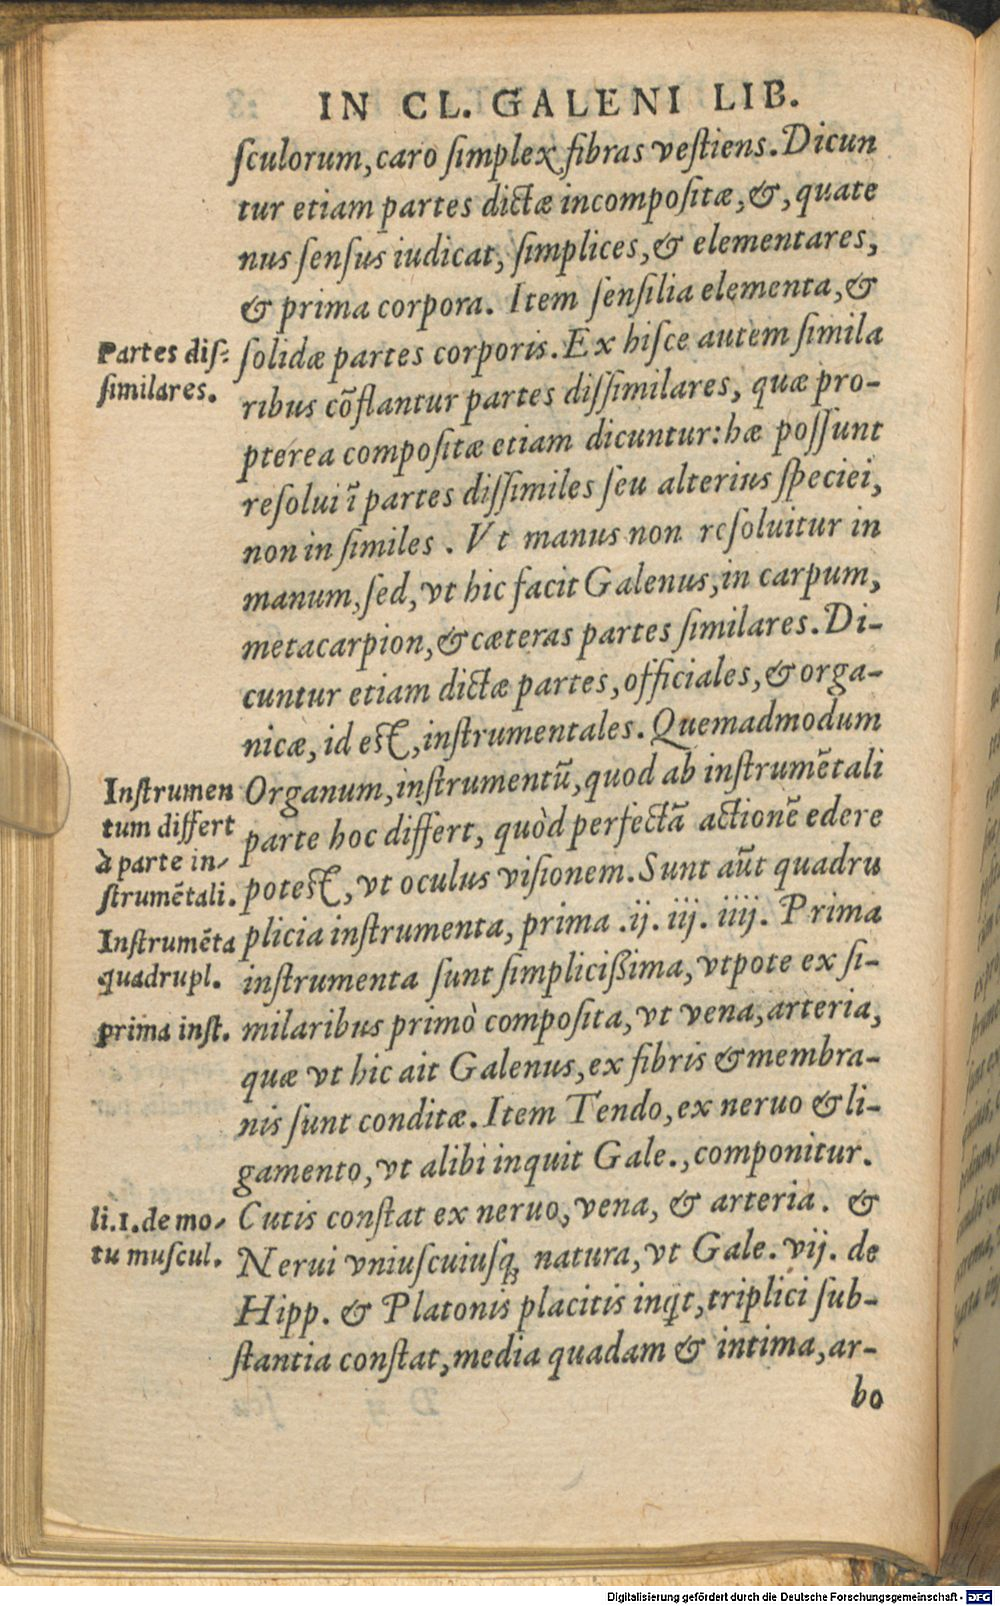 IN CL. GALENI LIB.
ſculorum, caro ſimplex fibras veſtiens. Dicun
tur etiam partes dictæ incompoſitæ, &, quate
nus ſenſus iudicat, ſimplices, & elementares,
& prima corpora. Item ſenſilia elementa, &
Partes diſ-
ſimilares.
ſolidæ partes corporis. Ex hiſce autem ſimila
ribus cõſlantur partes diſſimilares, quæ pro-
pterea compoſitæ etiam dicuntur: hæ poſſunt
reſolui ĩ partes diſſimiles ſeu alterius ſpeciei,
non in ſimiles. Vt manus non reſoluitur in
manum, ſed, vt hic facit Galenus, in carpum,
metacarpion, & cæteras partes ſimilares. Di-
cuntur etiam dictæ partes, officiales, & orga-
nicæ, id eſt, inſtrumentales. Quemadmodum
Inſtrumen
tum differt
à parte in-
ſtrumẽtali.
Organum, inſtrumentũ, quod ab inſtrumẽtali
parte hoc differt, quòd perfectã actionẽ edere
poteſt, vt oculus viſionem. Sunt aũt quadru
Inſtrumẽta
quadrupl.
prima inſt.
plicia inſtrumenta, prima .ij. iij. iiij. Prima
inſtrumenta ſunt ſimplicißima, vtpote ex ſi-
milaribus primò compoſita, vt vena, arteria,
quæ vt hic ait Galenus, ex fibris & membra-
nis ſunt conditæ. Item Tendo, ex neruo & li-
gamento, vt alibi inquit Gale., componitur.
li.1. de mo-
tu muſcul.
Cutis conſtat ex neruo, vena, & arteria. &
Nerui vniuſcuiuſq; natura, vt Gale. vij. de
Hipp. & Platonis placitis inq̃t, triplici ſub-
ſtantia conſtat, media quadam & intima, ar-
bo
Digitalisierung gefördert durch die Deutsche Forschungsgemeinschaft - DFG